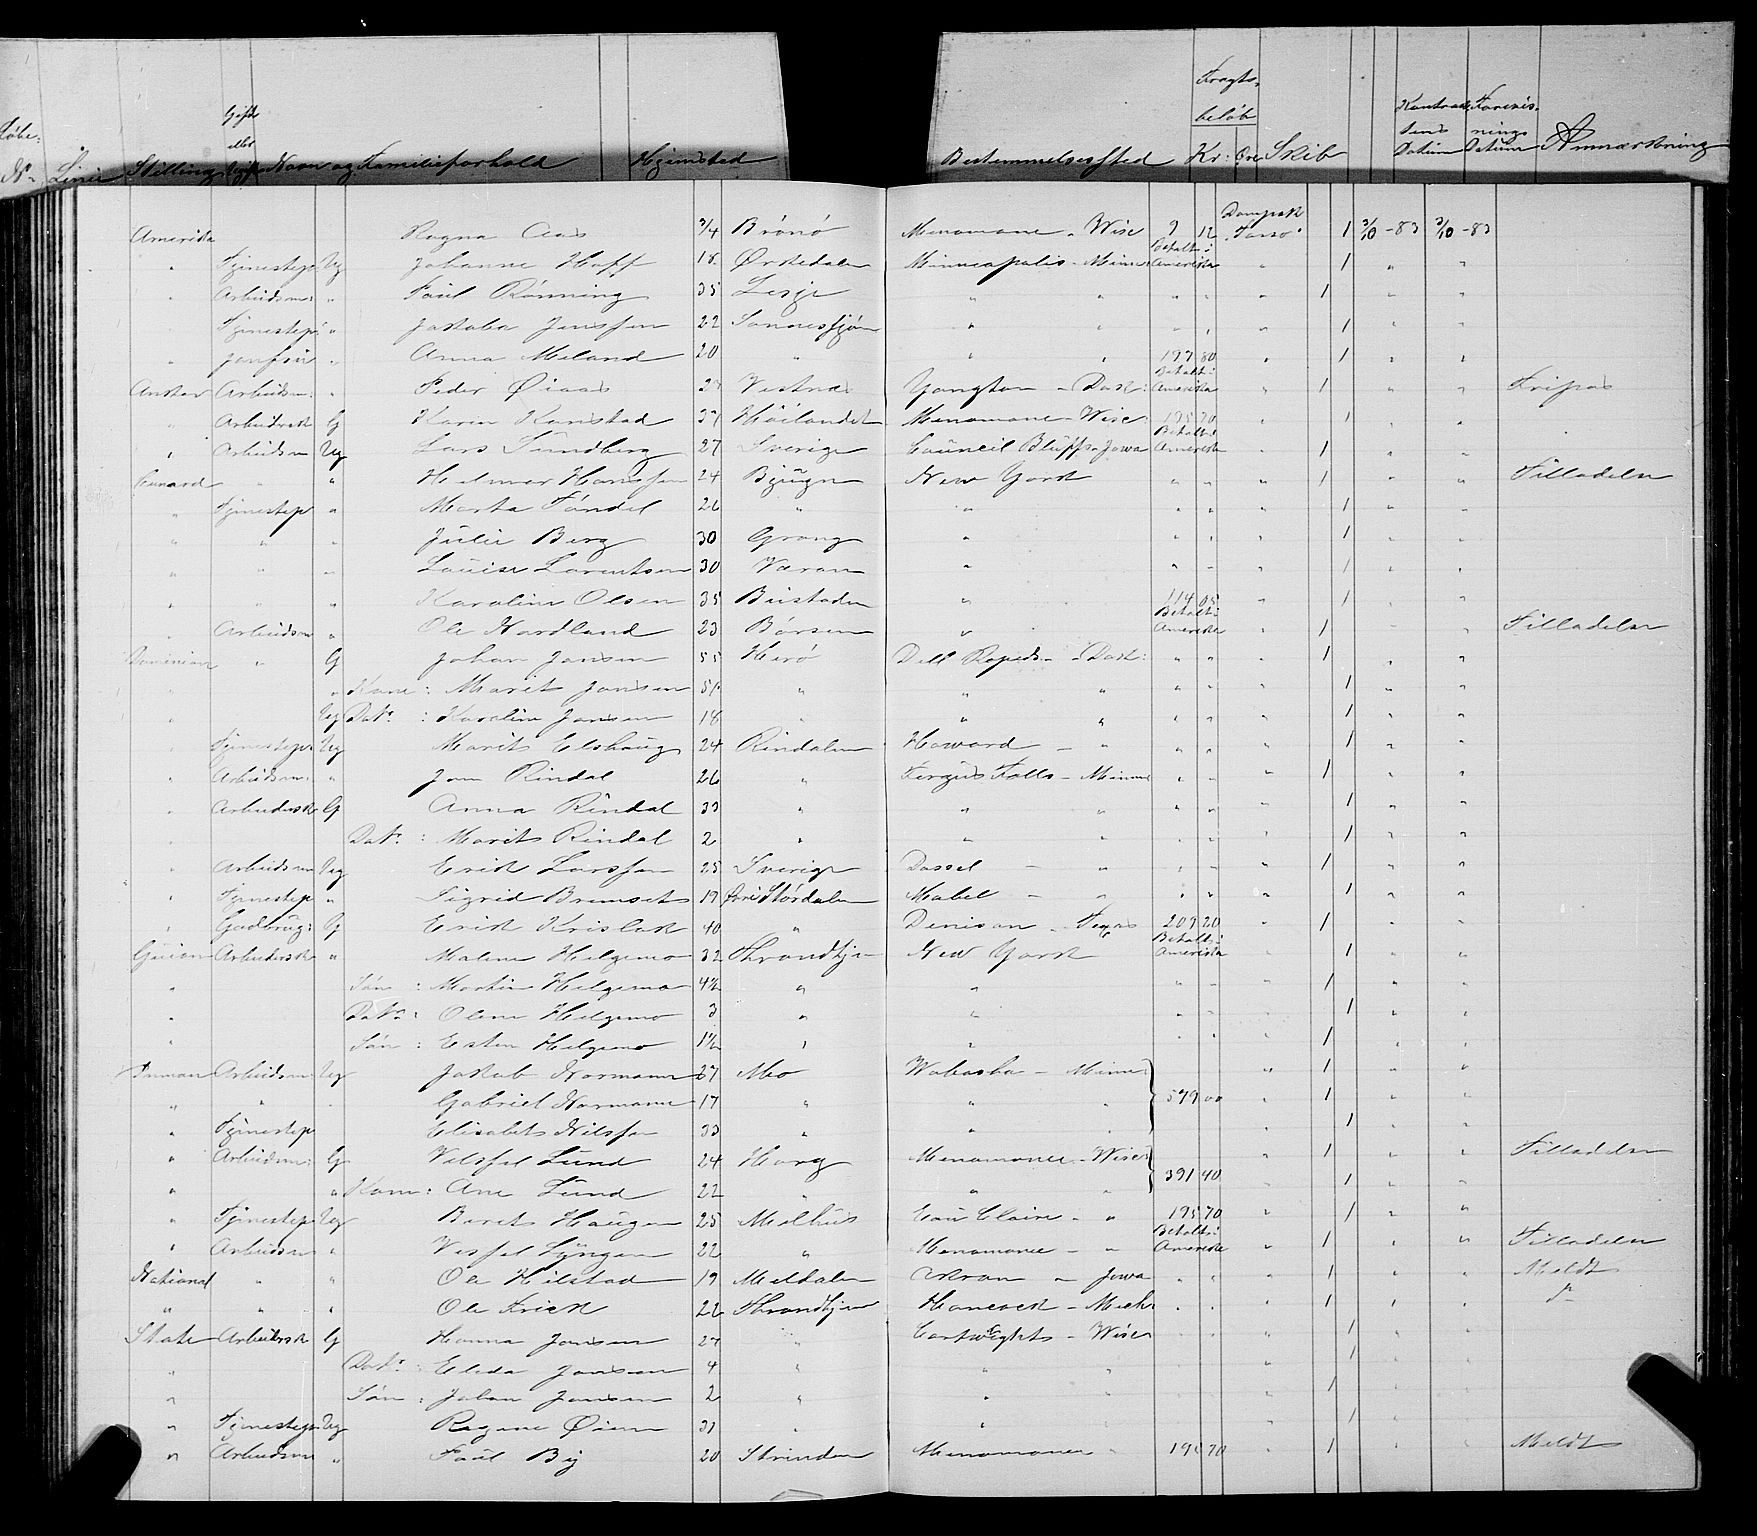 Løbe- N° Linie Stilling Gift eller Ugift Navn og Familieforhold Hjemsted Bestemmelsessted Fragtbeløb Kr: Øre Skib Datum Datum Anmærkning
Amerika Ragna Aas 3/4 Brønø Menomonie - Wisc 9 12 Dampsk "Tasso" 1 3/10 - 83 3/10 - 83
" Tjenestep Ug Johanne Hoff 18 Ørkedalen Minneapolis - Minn: Betalt i Amerika " 1 " "
" Arbeidsm: " Paul Rønning 35 Lesje " " " " " 1 " "
" Tjenestep: " Jakoba Jenssen 22 " " " " " 1 " "
" Jomfru " Anna Meland 20 " " " 197 80 " 1 " "
Anchor Arbeidsm: " Peder Øiaas Vestnes Yangton - Dak: Betalt i Amerika " 1 " " Fripas
" Arbeidersk G Karen Kanstad Høilandet Menomonie - Wisc: 195 70 " 1 " "
" Arbeidsm Ug Lars Sundberg 27 Sverige Council Bluffs - Jowa Betalt i Amerika " 1 " "
Cunard " " Helmer Hanssen 24 Bjugn New York " " " 1 " " Tilladelse
" Tjenestep " Marta Tøndel 26 " " " " " 1 " "
" " " Julie Berg 30 Grong " " " " 1 " "
" " " Louise Lorentsen 30 Næran " " " " 1 " "
" " " Karoline Olsen 35 Bustaden " 114 05 " 1 " "
" Arbeidsm " Ole Nordland 23 Børsen " Betalt i Amerika " 1 " " Tilladelse
Dominion " G Johan Jansen 55 Herø Dell Rapids - Dak: " " " 1 " "
" " Kone: Marit Jansen 51 " " " " " " 1 " "
" Ug Dat: Karoline Jansen 18 " " " " " " 1 " "
" Tjenestep: Ug Marit Elshaug 24 Rindalen Howard - " " " " 1 " "
" Arbeidsm: " Jon Rindal 26 " Fergus Falls - Minn " " " 1 " "
" Arbeidersk G Anna Rindal 33 " " " " " " 1 " "
" Dat: Marit Rindal 2 " " " " " " 1 " "
" Arbeidsm Ug Erik Larssen 25 Sverige Dassel - " " " " 1 " "
" Tjenestep " Sigrid Bremset 19 Øvre Størdalen Mabel - " " " " 1 " "
" Gaardbrug: G Erik 40 " Denison - Texas 209 20 " 1 " "
Guion Arbeidersk " Malene Helgemo 32 Throndhjem New York Betalt i Amerika " 1 " "
" Søn: Martin Helgemo 4½ " " " " " 1 " "
" Dat: Oline Helgemo 3 " " " " " 1 " "
" Søn: Esten Helgemo 1½ " " " " " 1 " "
Inman Arbeidsm Ug Jakob Normann 27 Mo Wabasha - Minn: " 1 " "
" " " Gabriel Normann 17 " " " 579 00 " 1 " "
" Tjenestep Elisabet Nilssen 33 " " " 1 " "
" Arbeidsm: G Lund 24 Horg Menomonee - Wisc " 1 " " Tilladelse
" " Kone: Ane Lund 22 " " " 391 40 " 1 " "
" Tjenestep Ug Beret Haugen 25 Melhus Eau Claire - " 195 70 " 1 " "
" Arbeidsm " Lyngen 22 " Menomonee - " Betalt i Amerika " 1 " " Tilladelse
National " " Ole Hilstad 19 Meldalen - Jowa " " " 1 " " Meldt
" " " Ole Krick 22 Throndhjem Hancock - Mich " " " 1 " " d°
State Arbeidersk G Hanna Jansen 27 " Cartwrights - Wisc " " " 1 " "
" Dat: Elida Jansen 4 " " " " 1 " "
" Søn: Johan Jansen 2 " " " " 1 " "
" Tjenestep Ug Ragne Øien 31 " " " 1 " "
" Arbeidsm " Paul By 20 Strinden Menomonee " 195 70 " 1 " " Meldt